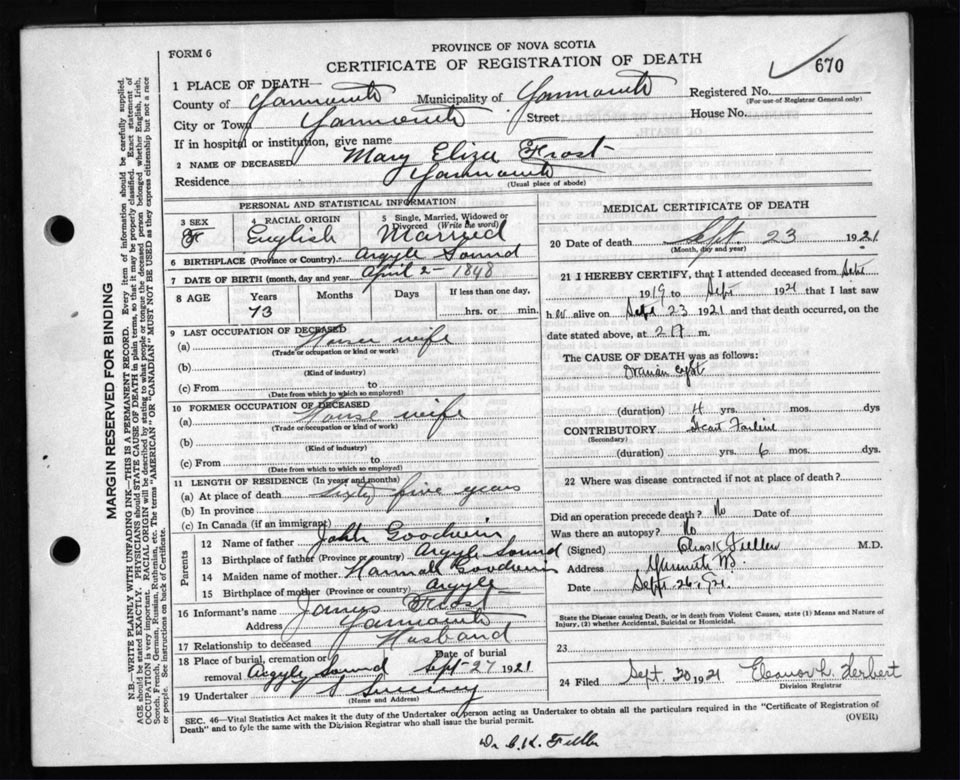 PROVINCE OF NOVA SCOTIA
FORM 6
CERTIFICATE OF REGISTRATION OF DEATH
670
1 PLACE OF DEATH—
County of Yarmouth Municipality of Yarmouth Registered No.
(For use of Registrar General only)
City or Town Yarmouth Street House No.
If in hospital or institution, give name
2 NAME OF DECEASED Mary Eliza Frost
Residence Yarmouth
(Usual place of abode)
PERSONAL AND STATISTICAL INFORMATION
3 SEX F
4 RACIAL ORIGIN English
5 Single, Married, Widowed or Divorced (Write the word) Married
6 BIRTHPLACE (Province or Country) Argyle Sound
7 DATE OF BIRTH (month, day and year) April 2 - 1848
8 AGE Years Months Days If less than one day,
73 hrs. or min.
9 LAST OCCUPATION OF DECEASED
(a) House wife
(Trade or occupation or kind or work)
(b)
(Kind of industry)
(c) From to
(Date from which to which so employed)
10 FORMER OCCUPATION OF DECEASED
(a) House wife
(Trade or occupation or kind of work)
(b)
(Kind of industry)
(c) From to
(Date from which to which so employed)
11 LENGTH OF RESIDENCE (In years and months)
(a) At place of death sixty five years
(b) In province
(c) In Canada (if an immigrant)
Parents
12 Name of father John Goodwin
13 Birthplace of father (Province or country) Argyle Sound
14 Maiden name of mother Hannah Goodwin
15 Birthplace of mother (Province or country) Argyle
16 Informant's name James Frost
Address Yarmouth
17 Relationship to deceased Husband
18 Place of burial, cremation or removal Argyle Sound Date of burial Sept-27 1921
19 Undertaker
(Name and Address)
MEDICAL CERTIFICATE OF DEATH
20 Date of death Sept. 23 1921
(Month, day and year)
21 I HEREBY CERTIFY, that I attended deceased from Sept
1919 to Sept 1921 that I last saw
her alive on Sept 23 1921 and that death occurred, on
date stated above, at 2 m.
The CAUSE OF DEATH was as follows:
Ovarian cyst
(duration) 4 yrs. mos. dys
CONTRIBUTORY Heart Failure
(Secondary)
(duration) yrs. 6 mos. dys.
22 Where was disease contracted if not at place of death?
Did an operation precede death? No Date of
Was there an autopsy? No
(Signed) Chas K Fuller M.D.
Address Yarmouth
Date Sept. 26, 21.
State the Disease causing Death, or in death from Violent Causes, state (1) Means and Nature of
Injury, (2) whether Accidental, Suicidal or Homicidal.
23
24 Filed Sept. 30 1921 Eleanor L. Herbert
Division Registrar
SEC. 46—Vital Statistics Act makes it the duty of the Undertaker or person acting as Undertaker to obtain all the particulars required in the "Certificate of Registration of
Death" and to fyle the same with the Division Registrar who shall issue the burial permit. (OVER)
Dr C. K. Fuller
MARGIN RESERVED FOR BINDING
N.B.—WRITE PLAINLY WITH UNFADING INK—THIS IS A PERMANENT RECORD. Every item of information should be carefully supplied.
AGE should be stated EXACTLY. PHYSICIANS should STATE CAUSE OF DEATH in plain terms, so that it may be properly classified. Exact statement of
OCCUPATION is very important. RACIAL ORIGIN will be described by stating to what people or tongue the deceased person belonged whether English, Irish,
Scotch, French, German, Russian, Ruthenian, etc. The terms "AMERICAN" OR "CANADIAN" MUST NOT BE USED as they express citizenship but not a race
or people. See instructions on back of Certificate.